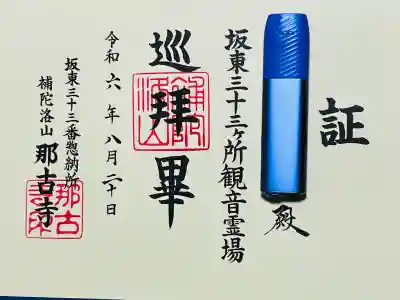 証
殿
坂東三十三ヶ所観音霊場
巡拝畢
令和六年八月二十日
坂東三十三番惣納所
補陀洛山 那古寺
那古寺印